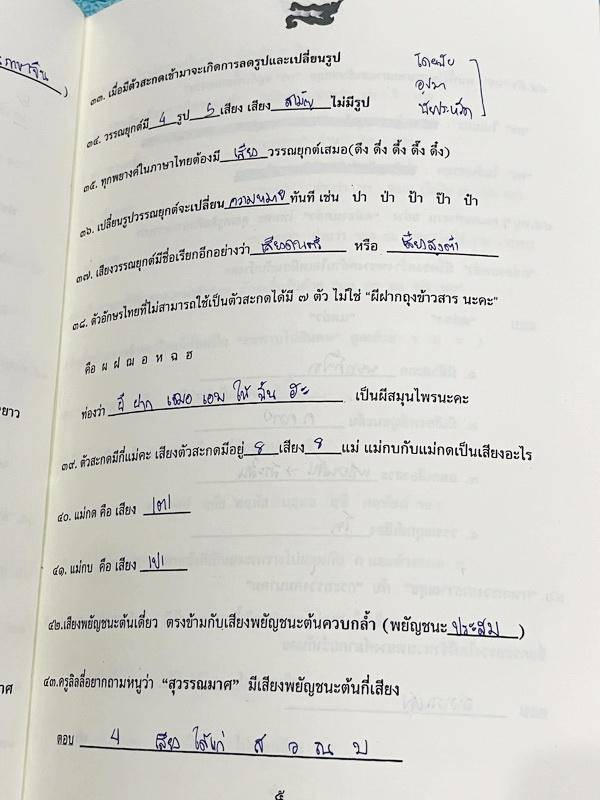 ภาษาจีน
๓๓. เมื่อมีตัวสะกดเข้ามาจะเกิดการลดรูปและเปลี่ยนรูป
๓๔. วรรณยุกต์มี 4 รูป 5 เสียง เสียง สามัญ ไม่มีรูป
๓๕. ทุกพยางค์ในภาษาไทยต้องมี เสียง วรรณยุกต์เสมอ(ดึง ดึ่ง ดึ้ง ดึ๊ง ดึ๋ง)
๓๖. เปลี่ยนรูปวรรณยุกต์จะเปลี่ยน ความหมาย ทันที เช่น ปา ป่า ป้า ป๊า ป๋า
๓๗. เสียงวรรณยุกต์มีชื่อเรียกอีกอย่างว่า เสียงดนตรี หรือ เสียงสูงต่ำ
๓๘. ตัวอักษรไทยที่ไม่สามารถใช้เป็นตัวสะกดได้มี ๗ ตัว ไม่ใช่ “ผีฝากถุงข้าวสาร นะคะ”
คือ ผ ฝ ฌ อ ห ฉ ฮ
ท่องว่า ผี ฝาก เฌอ เอม ให้ ฉัน ฮะ เป็นผีสมุนไพรนะคะ
๓๙. ตัวสะกดมีกี่แม่คะ เสียงตัวสะกดมีอยู่ 8 เสียง 8 แม่ แม่กบกับแม่กดเป็นเสียงอะไร
๔๐. แม่กด คือ เสียง /ต/
๔๑. แม่กบ คือ เสียง /ป/
๔๒.เสียงพยัญชนะต้นเดี่ยว ตรงข้ามกับเสียงพยัญชนะต้นควบกล้ำ (พยัญชนะ ประสม )
๔๓.ครูลิลลี่อยากถามหนูว่า “สุวรรณมาศ” มีเสียงพยัญชนะต้นกี่เสียง
ตอบ 4 เสียง ได้แก่ ส ว ณ ม
๕